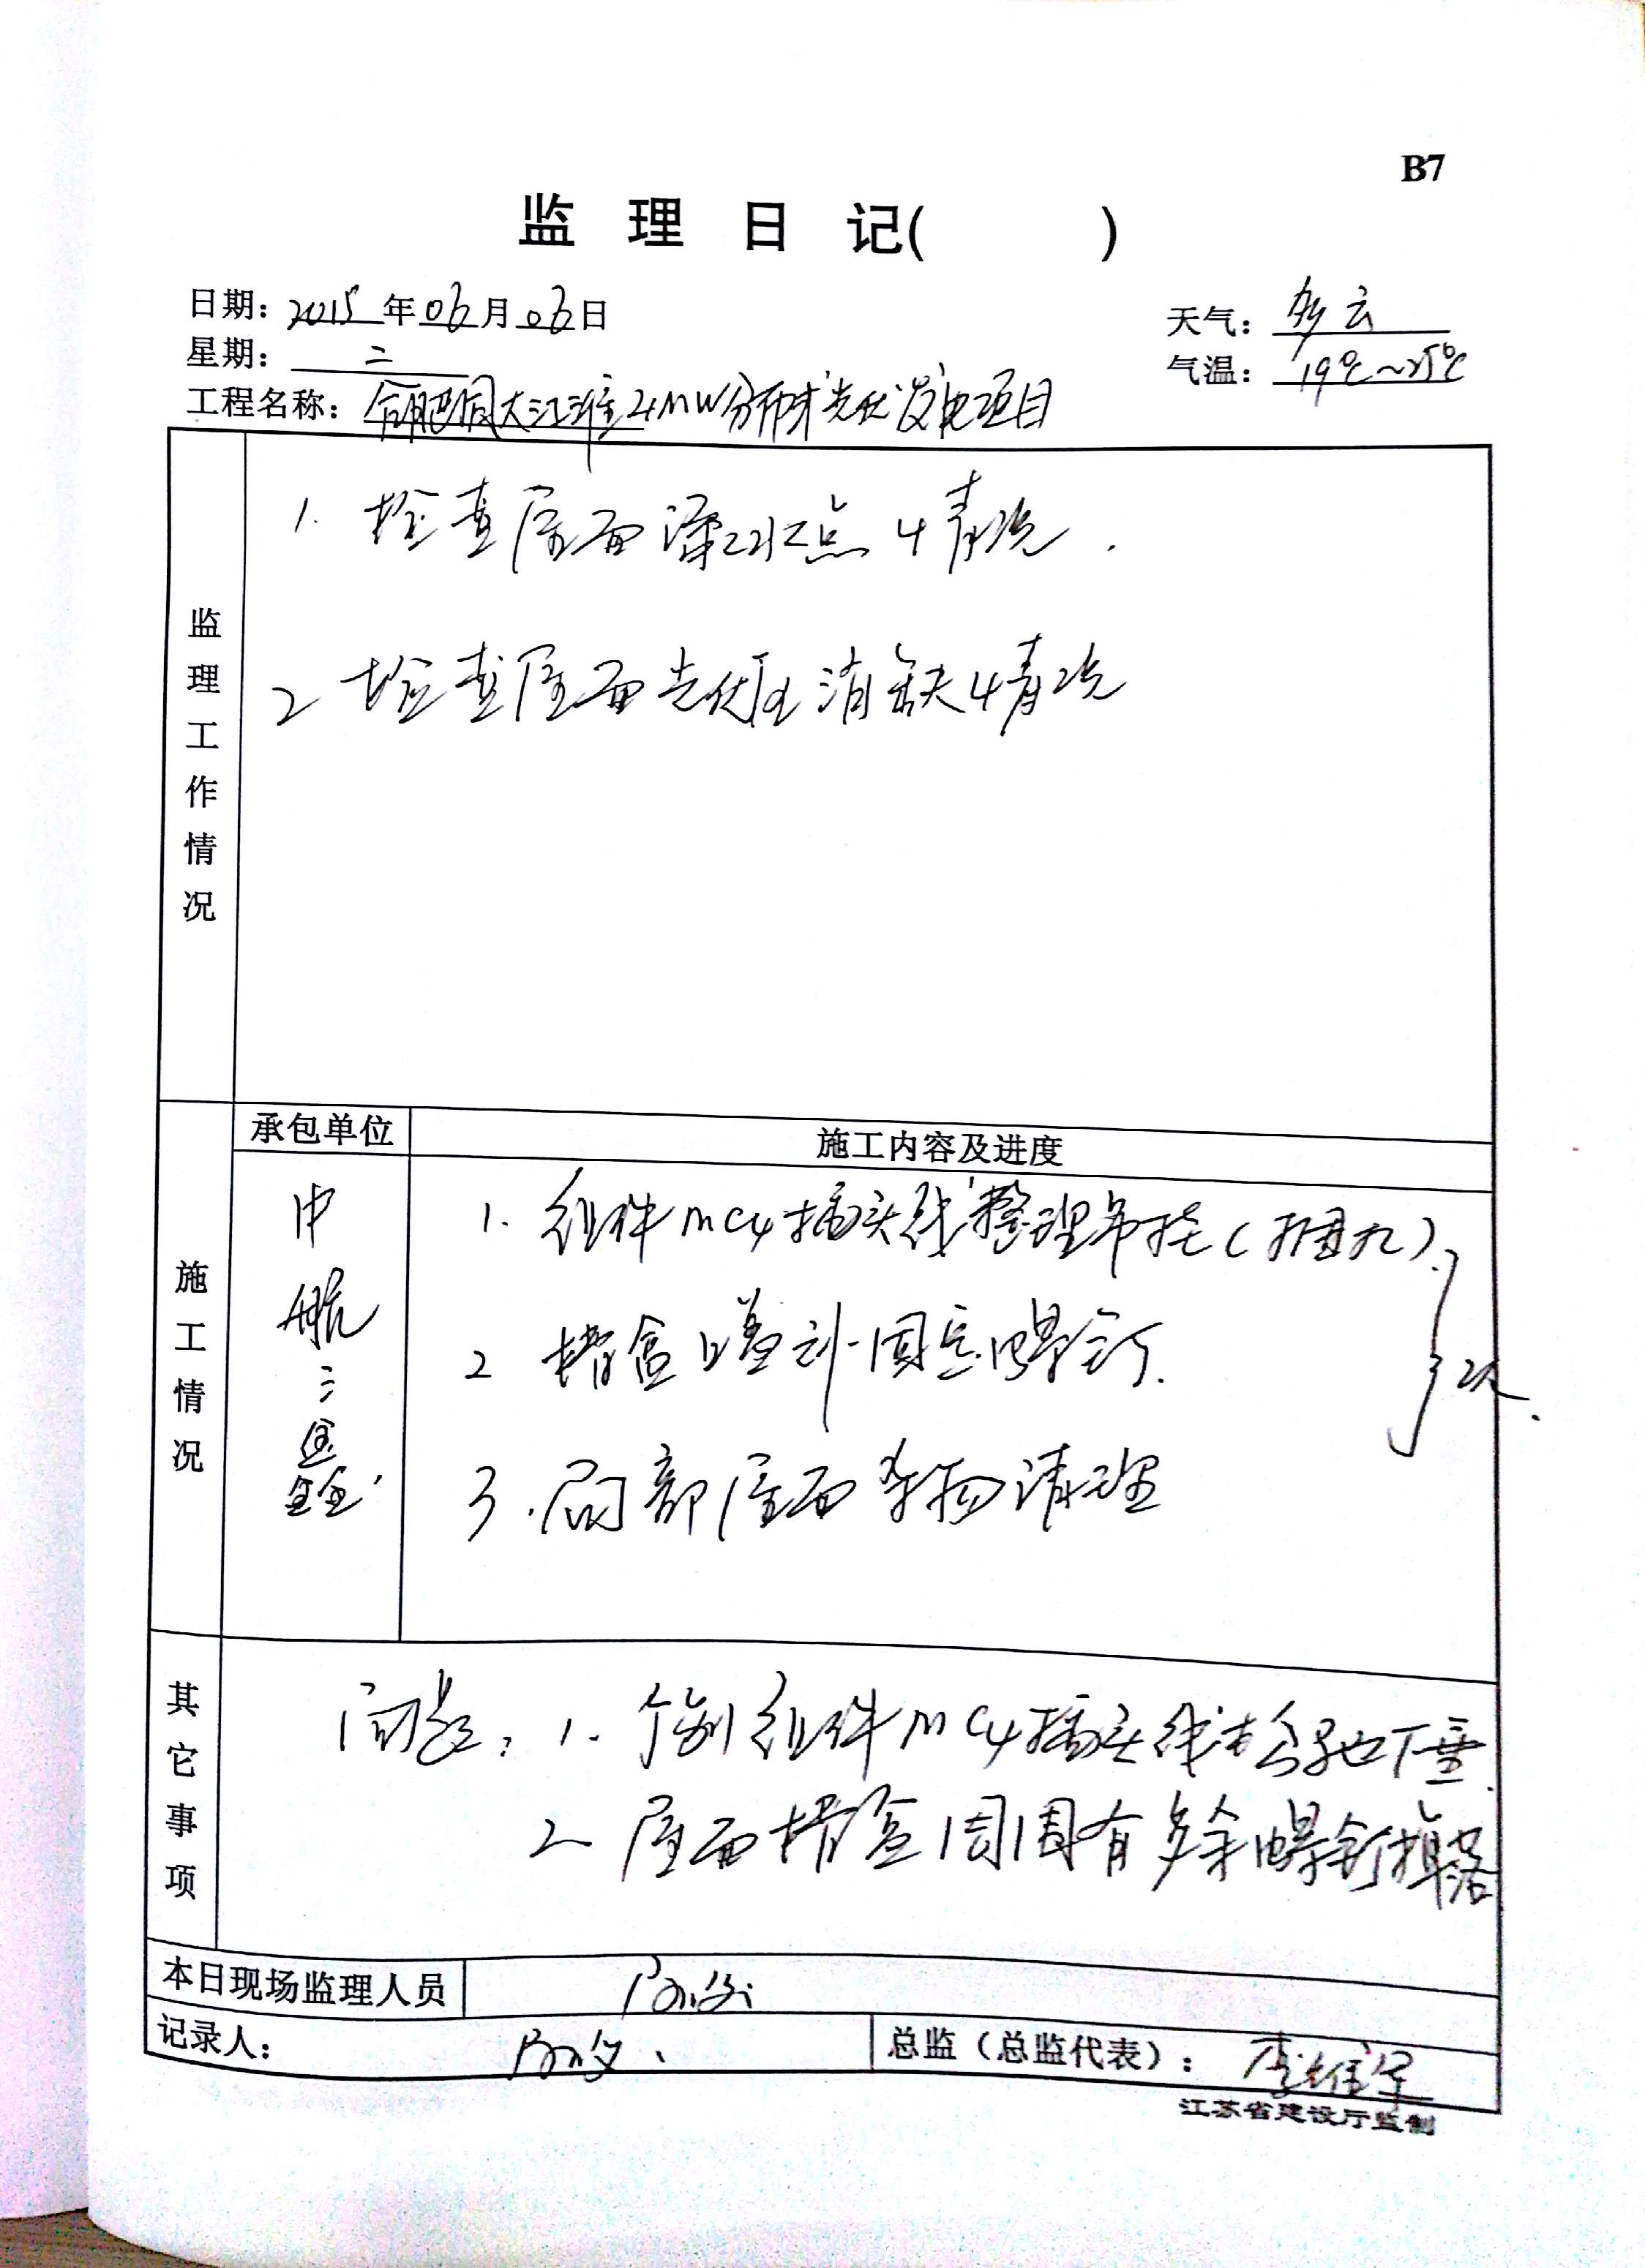 B7
监 理 日 记( )
日期: 2015年06月06日
天气: 多云
星期: 二
气温: 19℃~25℃
工程名称: 合肥同大江淮4MW分布式光伏发电项目
监理工作情况
1. 检查屋面漏水点情况.
2 检查屋面光伏区消缺情况
施工情况
承包单位
施工内容及进度
中航三鑫
1. 组件MC4插头线整理吊挂
2 槽盒增补固定螺钉.
3.局部屋面杂物清理
其它事项
问题: 1. 个别组件MC4插头线下垂.
2 屋面槽盒周围有多余螺钉掉落
本日现场监理人员
记录人:
总监（总监代表）: 李维军
江苏省建设厅监制